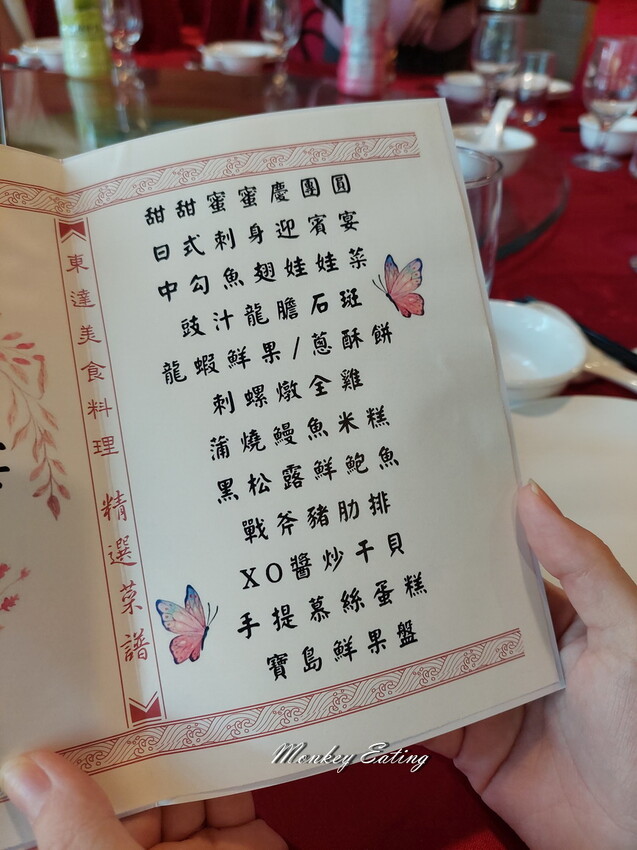 東達美食料理 精選菜譜
甜甜蜜蜜慶團圓
日式刺身迎賓宴
中勾魚翅娃娃菜
豉汁龍膽石斑
龍蝦鮮果/蔥酥餅
刺螺燉全雞
蒲燒鰻魚米糕
黑松露鮮鮑魚
戰斧豬肋排
XO醬炒干貝
手提慕絲蛋糕
寶島鮮果盤
Monkey Eating